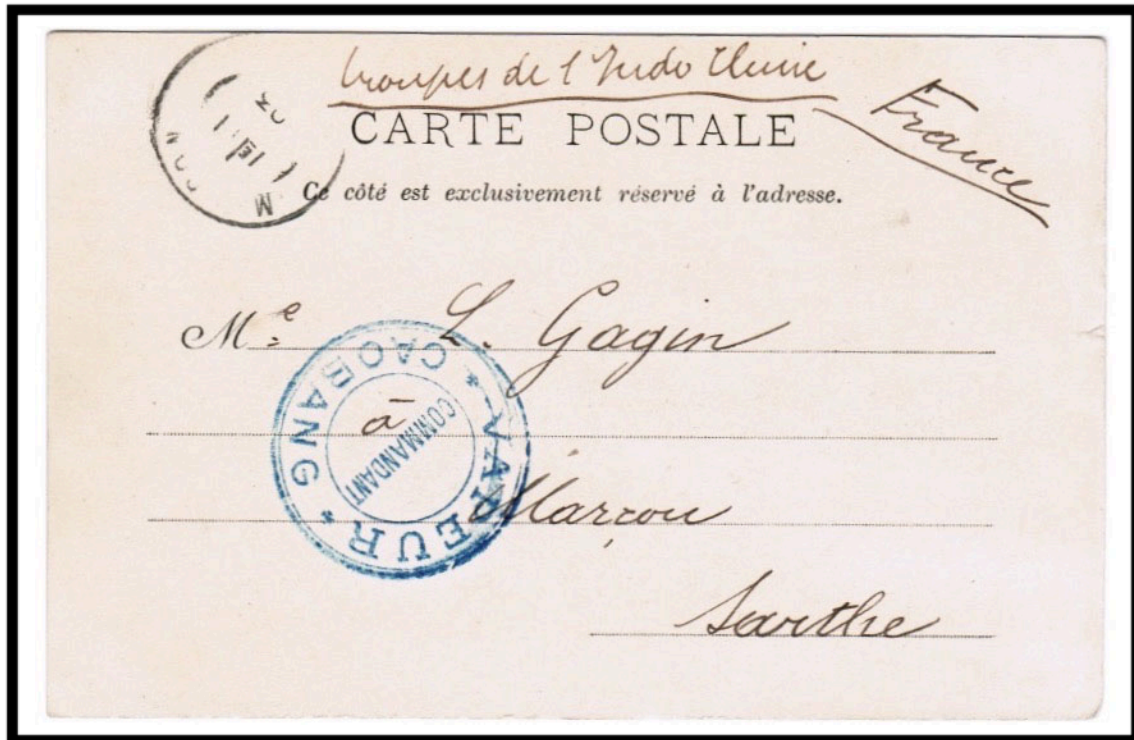 troupes de l'Indo Chine
France
CARTE POSTALE
Ce côté est exclusivement réservé à l'adresse.
Me L. Gagin
à
Marçon
Sarthe
VAPEUR * CAOBANG *
COMMANDANT